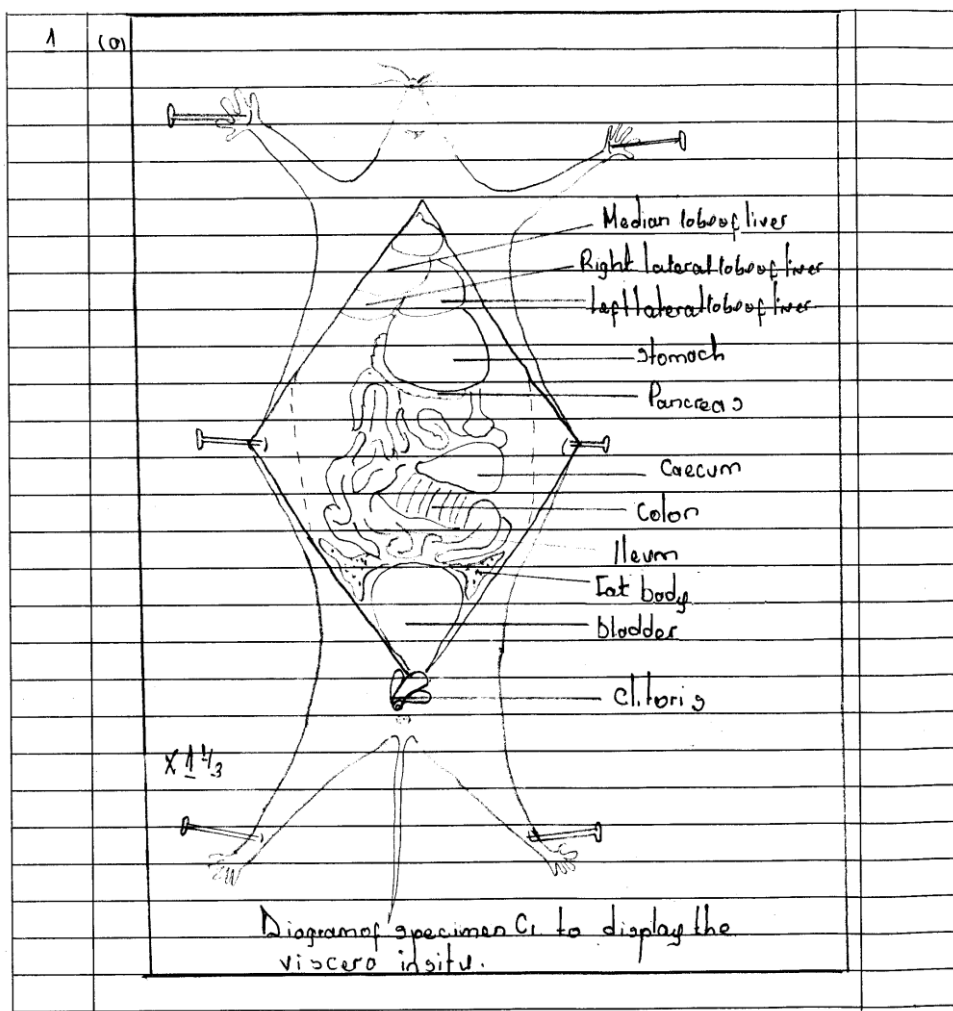 1 (a)
Median lobe of liver
Right lateral lobe of liver
Left lateral lobe of liver
Stomach
Pancreas
Caecum
Colon
Ileum
Fat body
bladder
Clitoris
X 1 1/3
Diagram of specimen C1 to display the
viscera insitu.